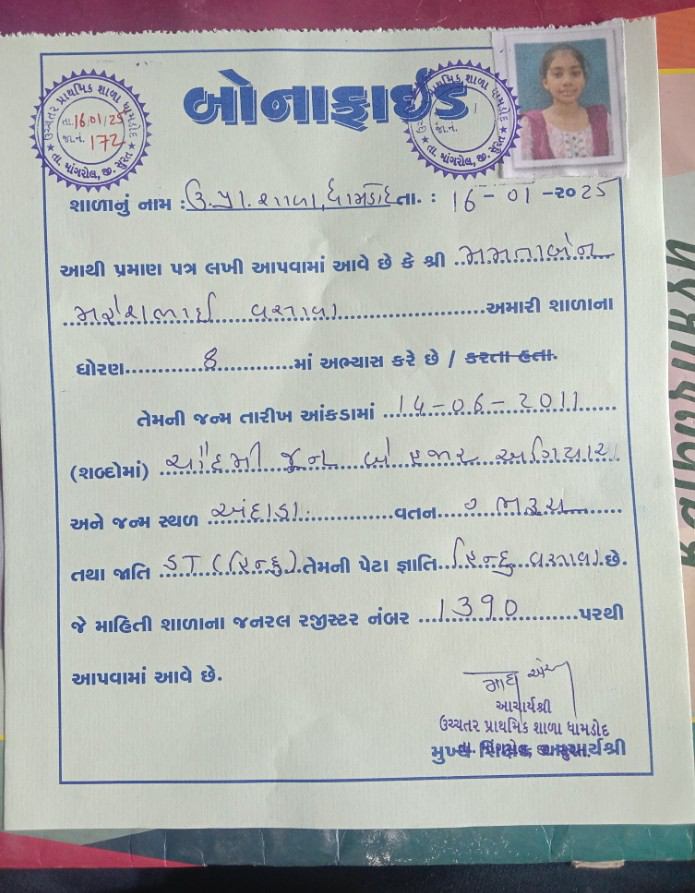 બોનાફાઈડ
ઉચ્ચતર પ્રાથમિક શાળા ધામડોદ
તા. 16/01/25
જા.નં. 172
તા. માંગરોલ, જી. સુરત
પ્રાથમિક શાળા ધામડોદ
જા.નં.
તા. માંગરોલ, જી. સુરત
શાળાનું નામ : ઉ.પ્રા. શાળા, ધામડોદ તા. : 16-01-૨૦25
આથી પ્રમાણ પત્ર લખી આપવામાં આવે છે કે શ્રી મમતાબેન
વસાવા અમારી શાળાના
ધોરણ 8 માં અભ્યાસ કરે છે / કરતા હતા.
તેમની જન્મ તારીખ આંકડામાં 14-06-2011
(શબ્દોમાં) ચૌદમી જૂન બે હજાર અગિયાર
અને જન્મ સ્થળ અંદાડા વતન ભરૂચ
તથા જાતિ ST (હિન્દુ) તેમની પેટા જ્ઞાતિ હિન્દુ વસાવા છે.
જે માહિતી શાળાના જનરલ રજીસ્ટર નંબર 1390 પરથી
આપવામાં આવે છે.
આચાર્યશ્રી
ઉચ્ચતર પ્રાથમિક શાળા ધામડોદ
મુખ્ય શિક્ષક આચાર્યશ્રી